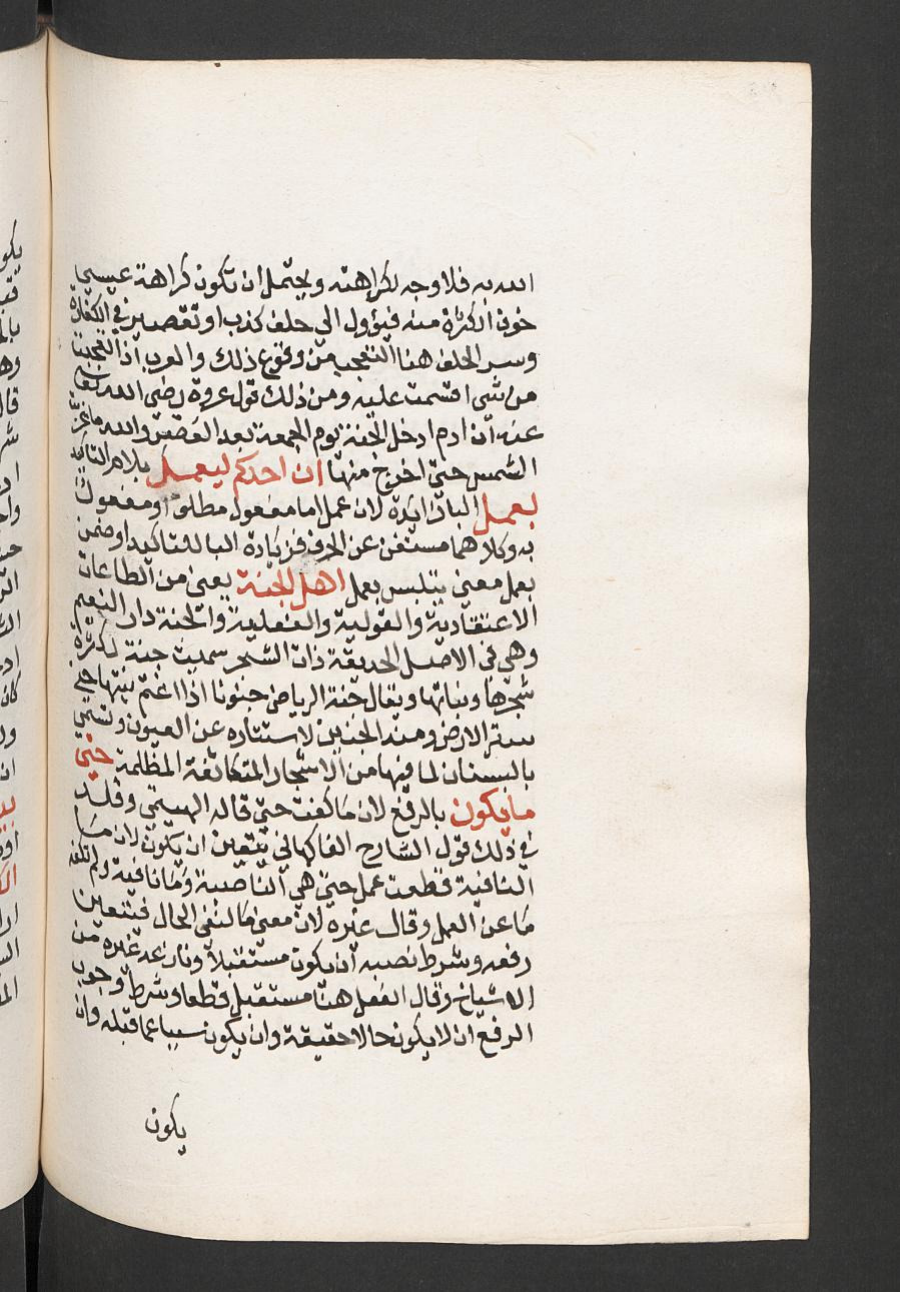 الله به فلا وجه لكراهته ويحتمل ان تكون كراهة عيسي
خوف الكثرة منه فيؤول الي حلف كذب او تقصير في الكفارة
وسر الحلف هنا التعجب من وقوع ذلك والعرب اذا تعجبت
من شي اقسمت عليه ومن ذلك قول عروة رضي الله
عنه ان ادم ادخل الجنة يوم الجمعة بعد العصر والله ما غربت
الشمس حتي اخرج منها ان احدكم ليعمل بلام التاكيد
بعمل البا زايدة لان عمل اما مفعول مطلق او مفعول
به وكلاهما مستغن عن الحرف فزيادة البا للتاكيد او ضمن
يعمل معني يتلبس بعمل اهل الجنة يعني من الطاعات
الاعتقادية والقولية والفعلية والجنة دار النعيم
وهي في الاصل الحديقة ذات الشجر سميت جنة لكثرة
شجرها ونباتها ويقال جنة الرياض جنونا اذا اعتم نبتها حتي
ستر الارض ومنه الجنين لاستتاره عن العيون وتسمي
بالبستان لما فيها من الاشجار المتكاثفة المظلمة حتي
ما يكون بالرفع لان ما كفت حتي قاله الهيتمي وقلد
في ذلك قول الشارح الفاكهاني يتعين ان يكون لان ما
النافية قطعت عمل حتي هي الناصبة وما نافية ولم تكفه
ما عن العمل وقال غيره لان معني ما لنفي الحال فيتعين
رفعه وشرط نصبه ان يكون مستقبلا ونازعه غيره من
الاشياخ وقال الفعل هنا مستقبل قطعا وشرط وجوب
الرفع ان لا يكون حالا حقيقة وان يكون سببا عما قبله وان
يكون